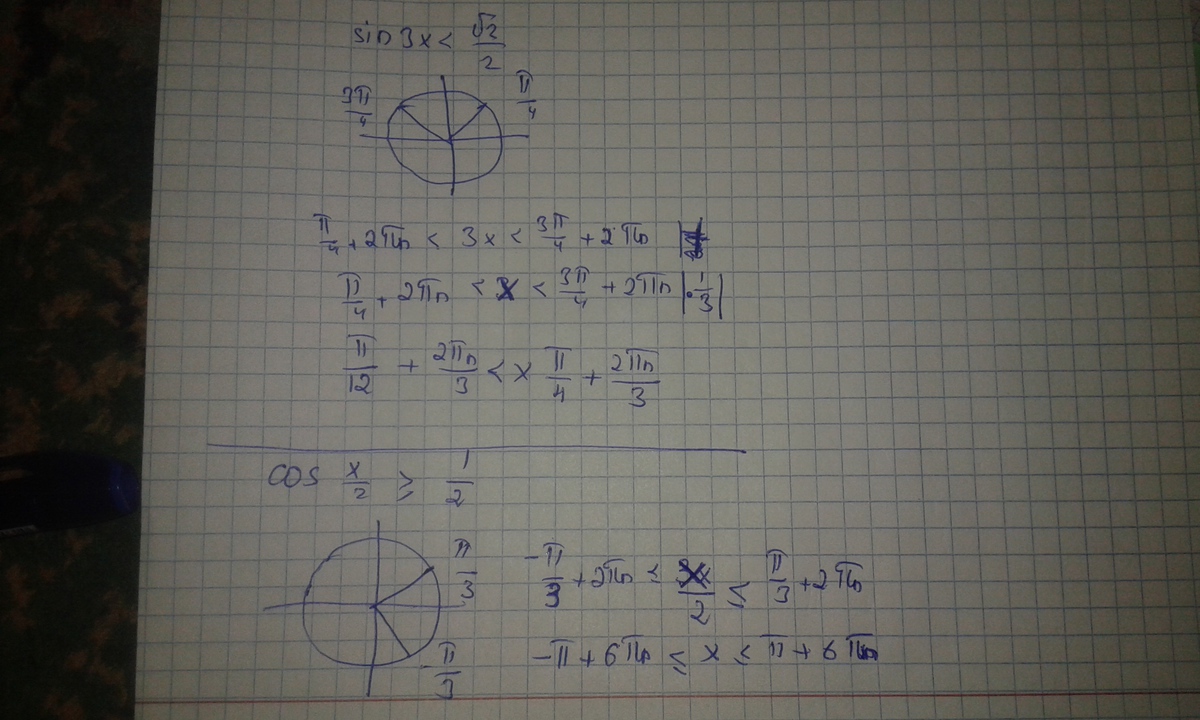 sin 3x < √2/2
3π/4 π/4
π/4 + 2πn < 3x < 3π/4 + 2πn
π/4 + 2πn < x < 3π/4 + 2πn |· 1/3|
π/12 + 2πn/3 < x π/4 + 2πn/3
cos x/2 ≥ 1/2
π/3
-π/3
-π/3 + 2πn ≤ x/2 ≤ π/3 + 2πn
-π + 6πn ≤ x ≤ π + 6πn